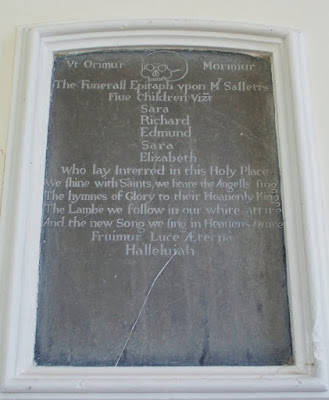 Vt Orimur Morimur
The Funerall Epitaph vpon Mr Salletts
Fiue Children Vizt
Sara
Richard
Edmund
Sara
Elizabeth
Who lay Interred in this Holy Place
We shine with Saints, we heare the Angells sing
The hymnes of Glory to their Heavenly King
The Lambe we follow in our white attire
And the new Song we sing in Heavens Quire
Fruimur Luce Æterna
Halleluiah